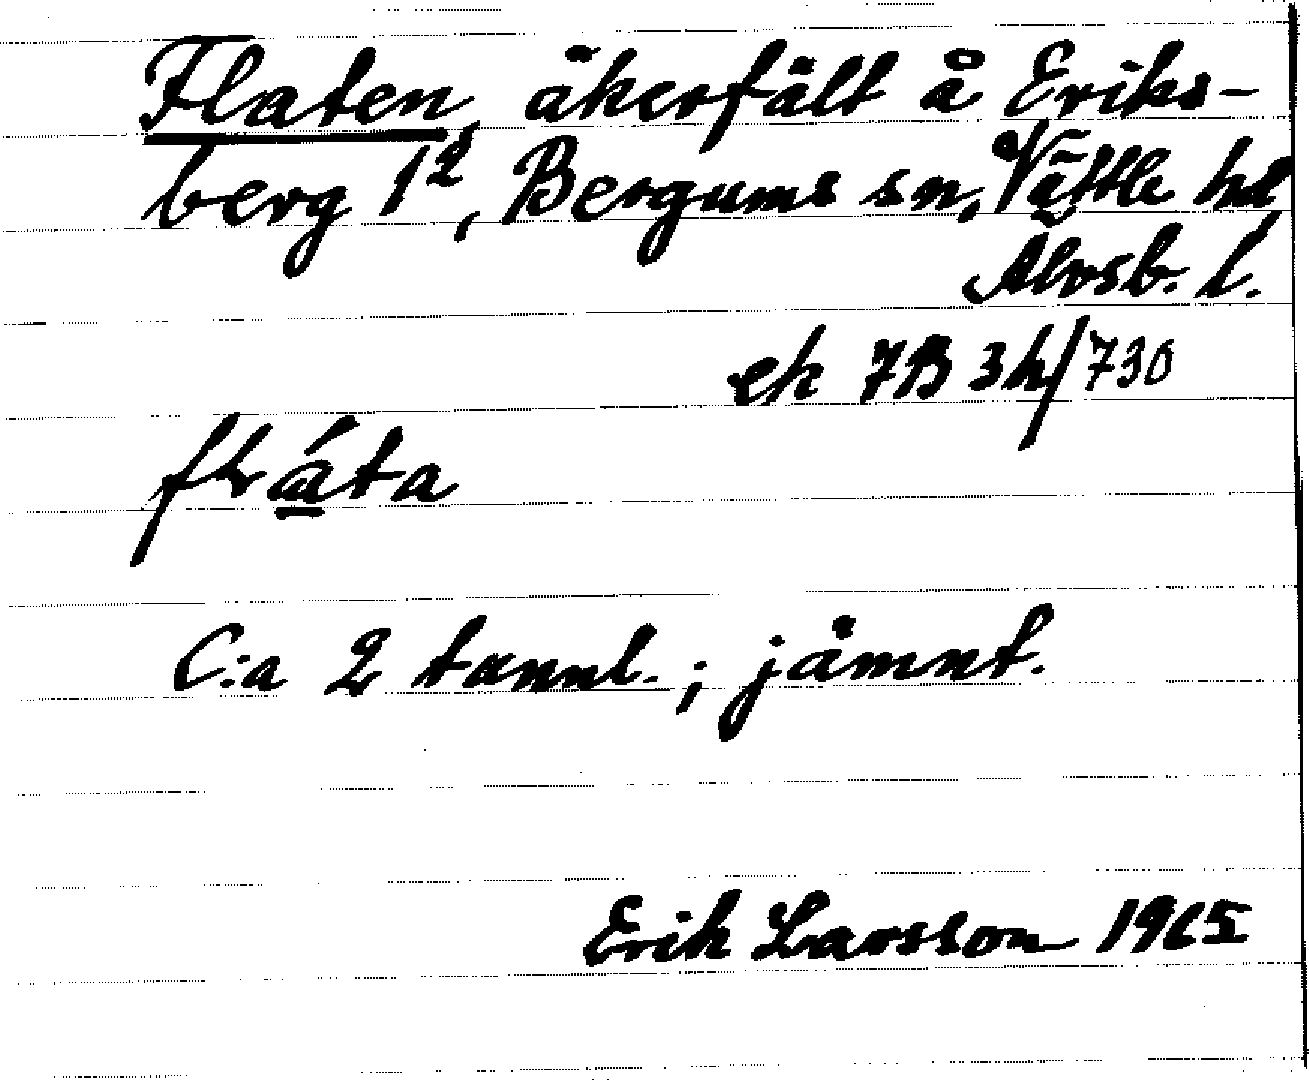 Flaten, åkerfält å Eriks-
berg 1², Bergums sn, Vättle hd
Älvsb. l.
ek 7B 3h/730
C:a 2 tunnl.; jämnt.
Erik Larsson 1965